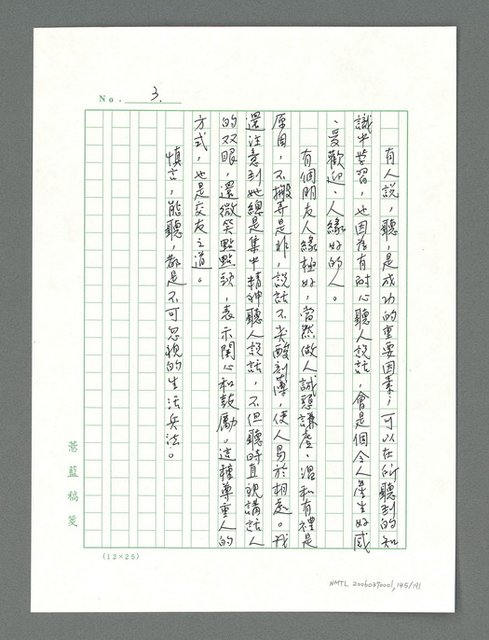 No. 3.
有人說，聽，是成功的重要因素，可以在所聽到的知
識中學習，也因為有耐心聽人說話，會是個令人產生好感
、受歡迎、人緣好的人。
有個朋友人緣極好，當然做人誠懇謙虛、溫和有禮是
原因，不搬弄是非，說話不尖酸刻薄，使人易於相處。我
還注意到她總是集中精神聽人說話，不但聽時直視講話人
的双眼，還微笑點點頭，表示關心和鼓勵。這種尊重人的
方式，也是交友之道。
慎言，能聽，都是不可忽視的生活兵法。
稿箋
(12×25)
NMTL 20060270001, 145/191